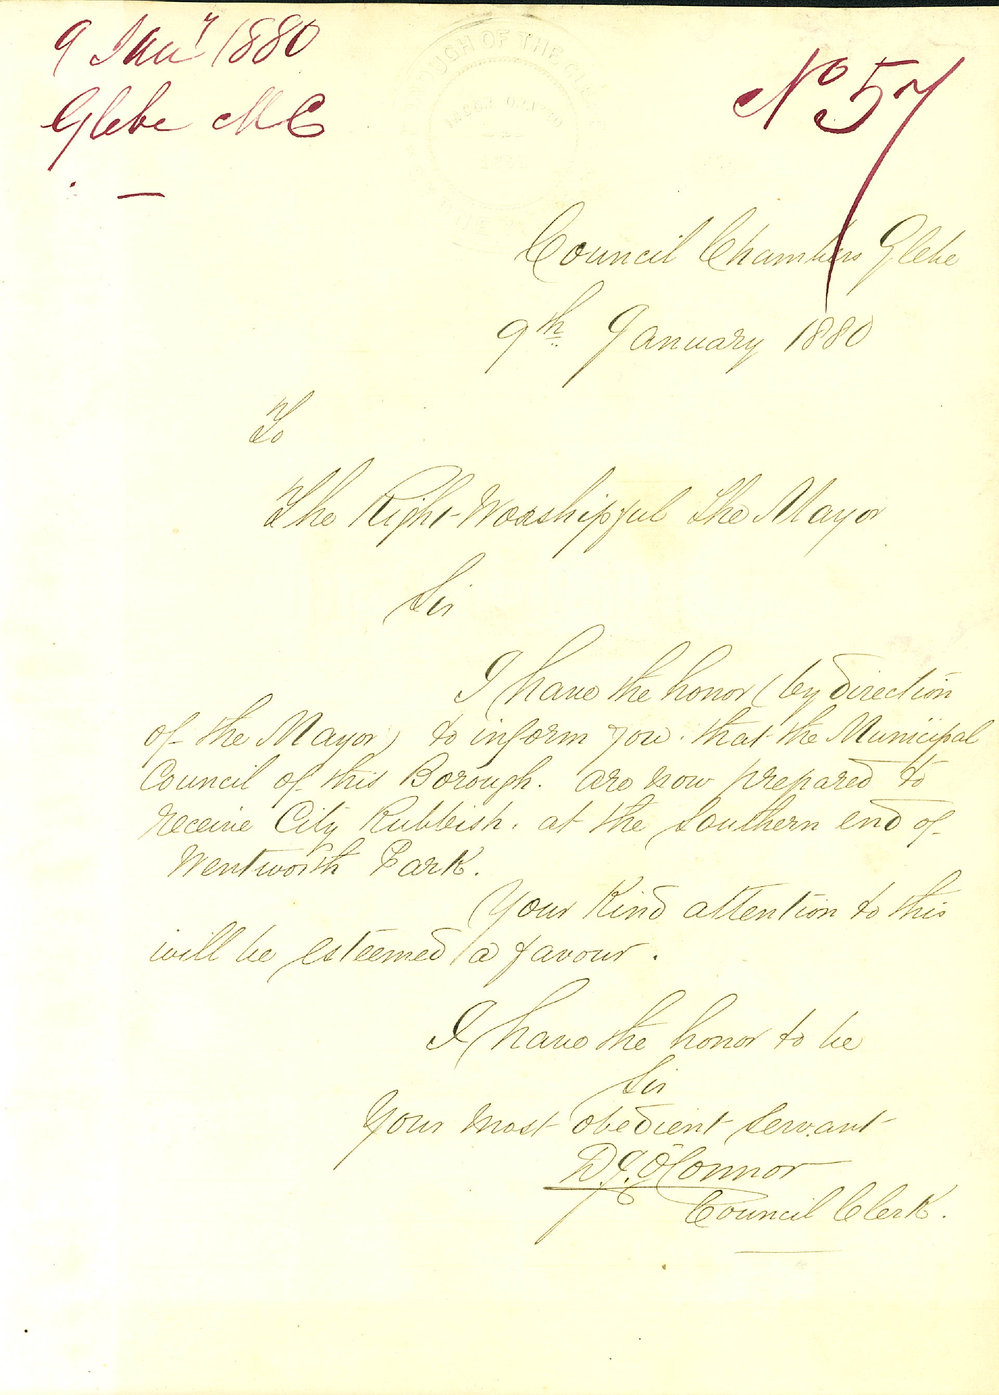 9 Jany 1880
Glebe M C
No 57
OUGH OF THE G
Council Chambers Glebe
9th January 1880
To
The Right Worshipful The Mayor
Sir
I have the honor (by direction
of the Mayor) to inform you that the Municipal
Council of this Borough. are now prepared to
receive City Rubbish. at the Southern end of
Wentworth Park.
Your Kind attention to this
will be esteemed a favour.
I have the honor to be
Sir
Your most obedient servant
D.J. O'Connor
Council Clerk.